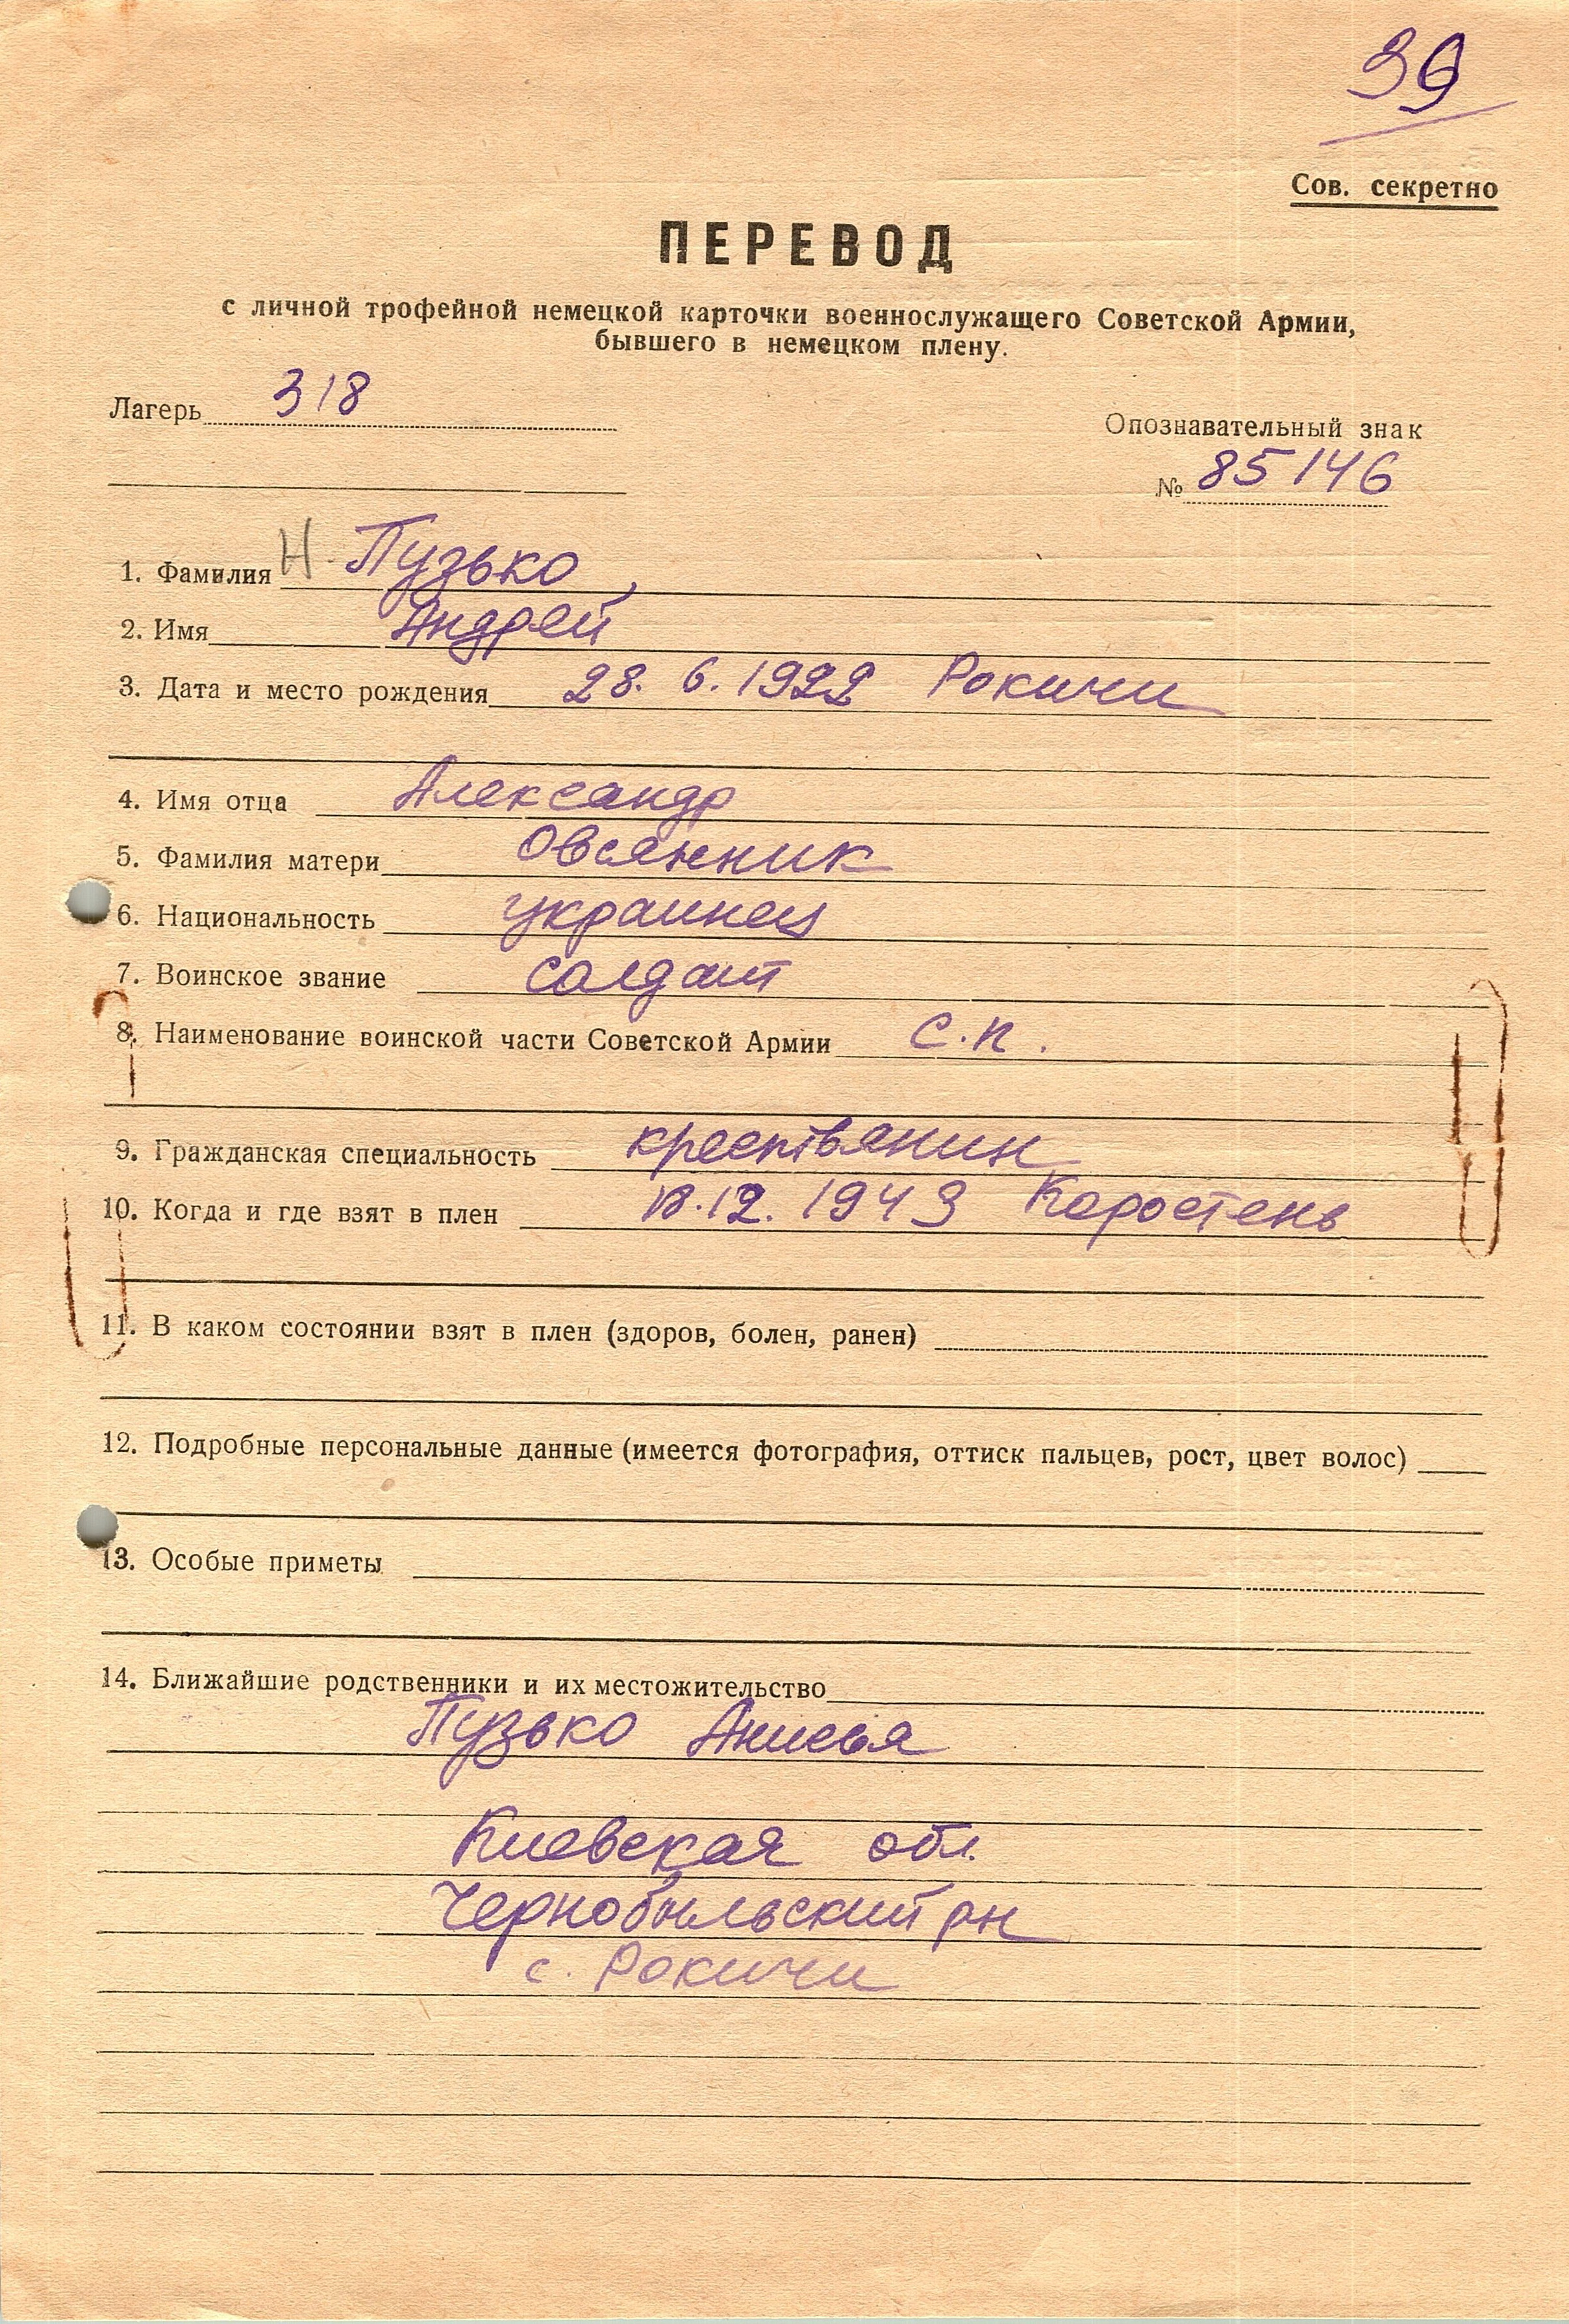 39
Сов. секретно
ПЕРЕВОД
с личной трофейной немецкой карточки военнослужащего Советской Армии,
бывшего в немецком плену.
Лагерь 318
Опознавательный знак
№ 85146
1. Фамилия Н. Пузько
2. Имя Андрей
3. Дата и место рождения 28. 6. 1922 Рокичи
4. Имя отца Александр
5. Фамилия матери Овсянник
6. Национальность украинец
7. Воинское звание солдат
8. Наименование воинской части Советской Армии С.п.
9. Гражданская специальность крестьянин
10. Когда и где взят в плен 18.12. 1943 Коростень
11. В каком состоянии взят в плен (здоров, болен, ранен)
12. Подробные персональные данные (имеется фотография, оттиск пальцев, рост, цвет волос)
13. Особые приметы
14. Ближайшие родственники и их местожительство
Пузько Анисья
Киевская обл.
Чернобыльский рн
с. Рокичи